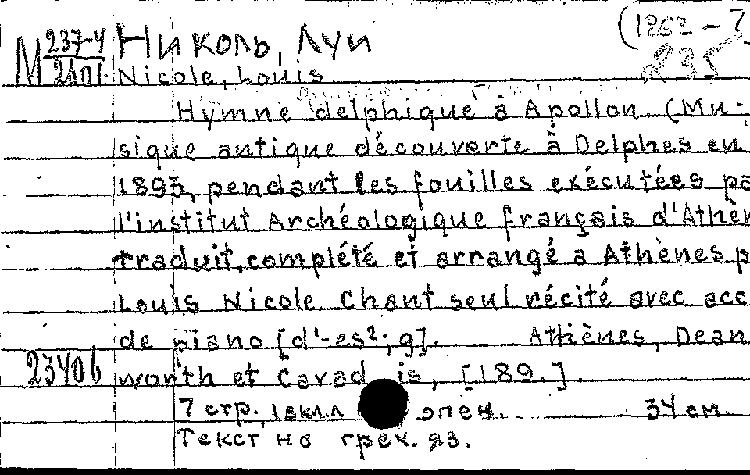 М 237-4 Николь, Луи (1862-
2401 Nicole, Louis
Hymne delphique à Apollon. (Mu-
sique antique découverte à Delphes en
1893, pendant les fouilles exécutées pa
l'institut Archéologique français d'Athèn
traduit, complété et arrangé a Athènes p
Louis Nicole. Chant seul récité avec acc
de piano [d'-es²; g]. Athènes, Dean
23406 worth et Cavad is, [189.]
7 стр., 1 вкл. 34 см.
Текст на греч. яз.